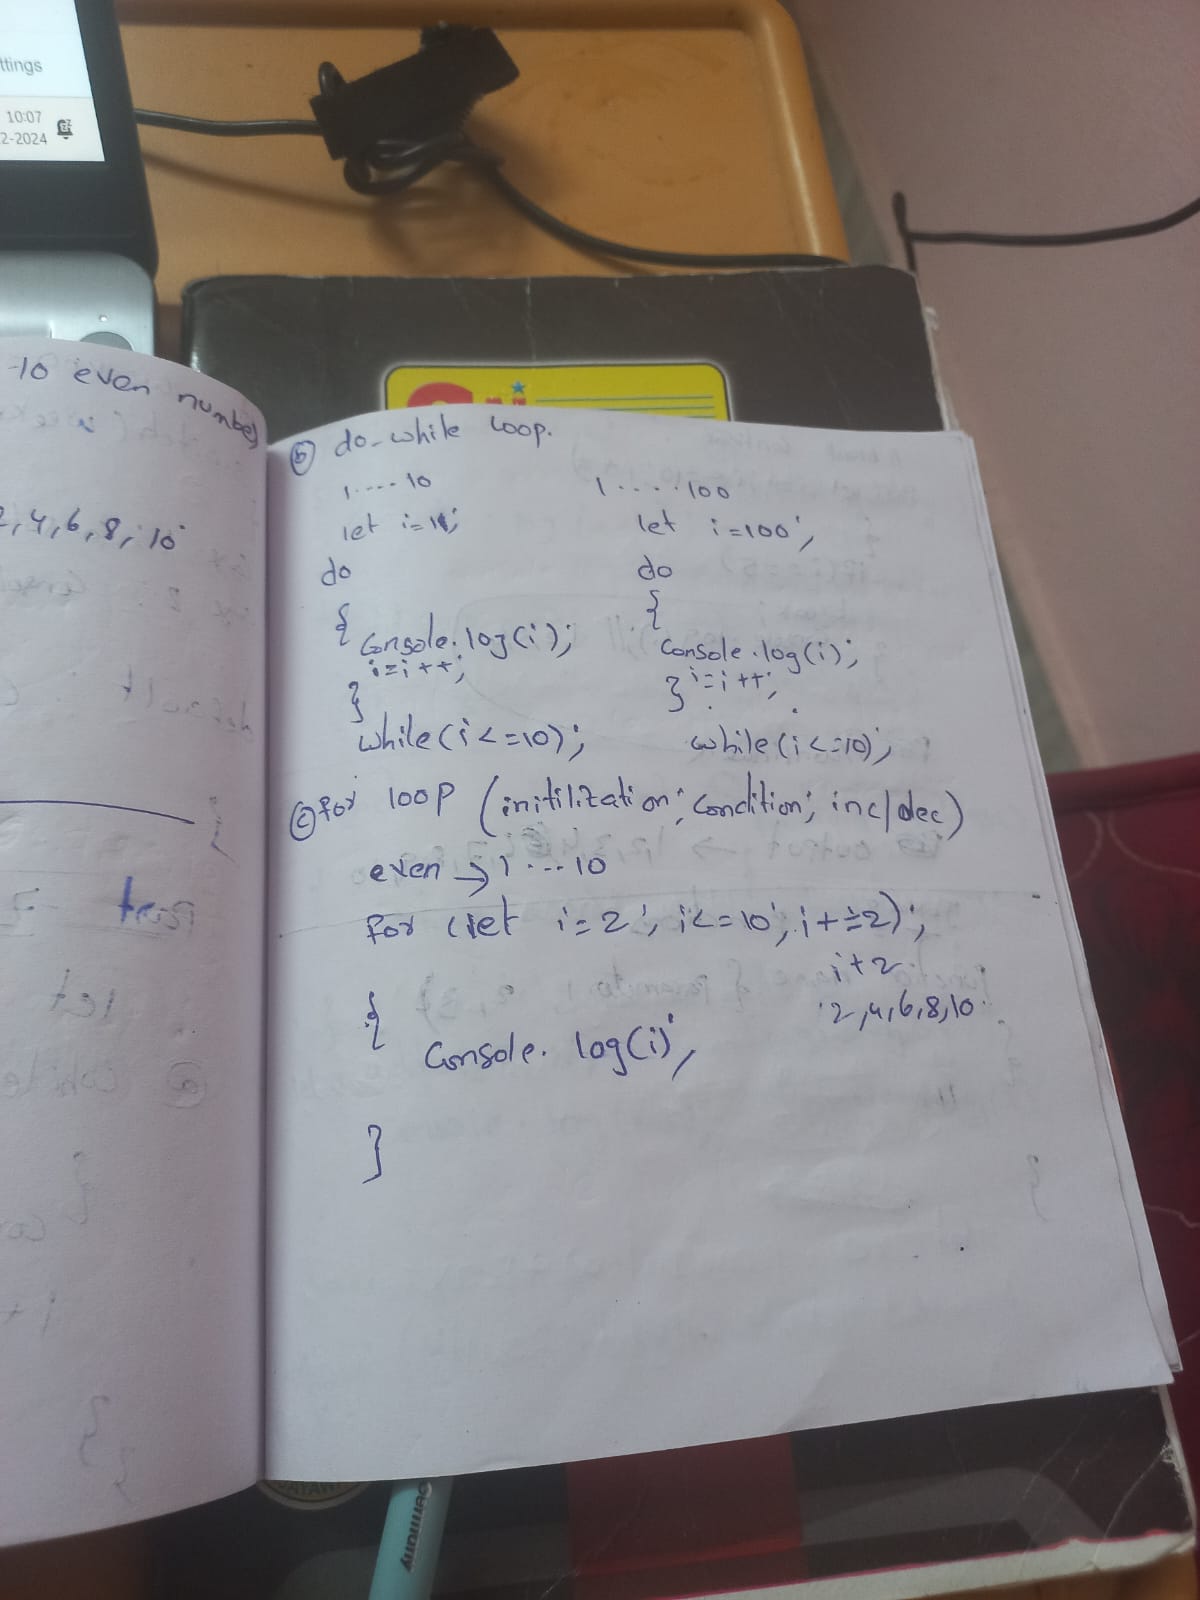 ttings
10:07
2-2024
-10 even number
2, 4, 6, 8, 10
ⓑ do-while loop.
1 ---- 10
let i=1;
do
{
Console.log(i);
i=i++;
}
while(i<=10);
1 . . . . 100
let i=100;
do
{
Console.log(i);
i=i++;
}
while(i<=10);
ⓒ for loop (initilization; Condition; inc/dec)
even → 1 ... 10
for (let i=2; i<=10; i+=2);
i+2
2,4,6,8,10
{
Console. log(i);
}
Germany